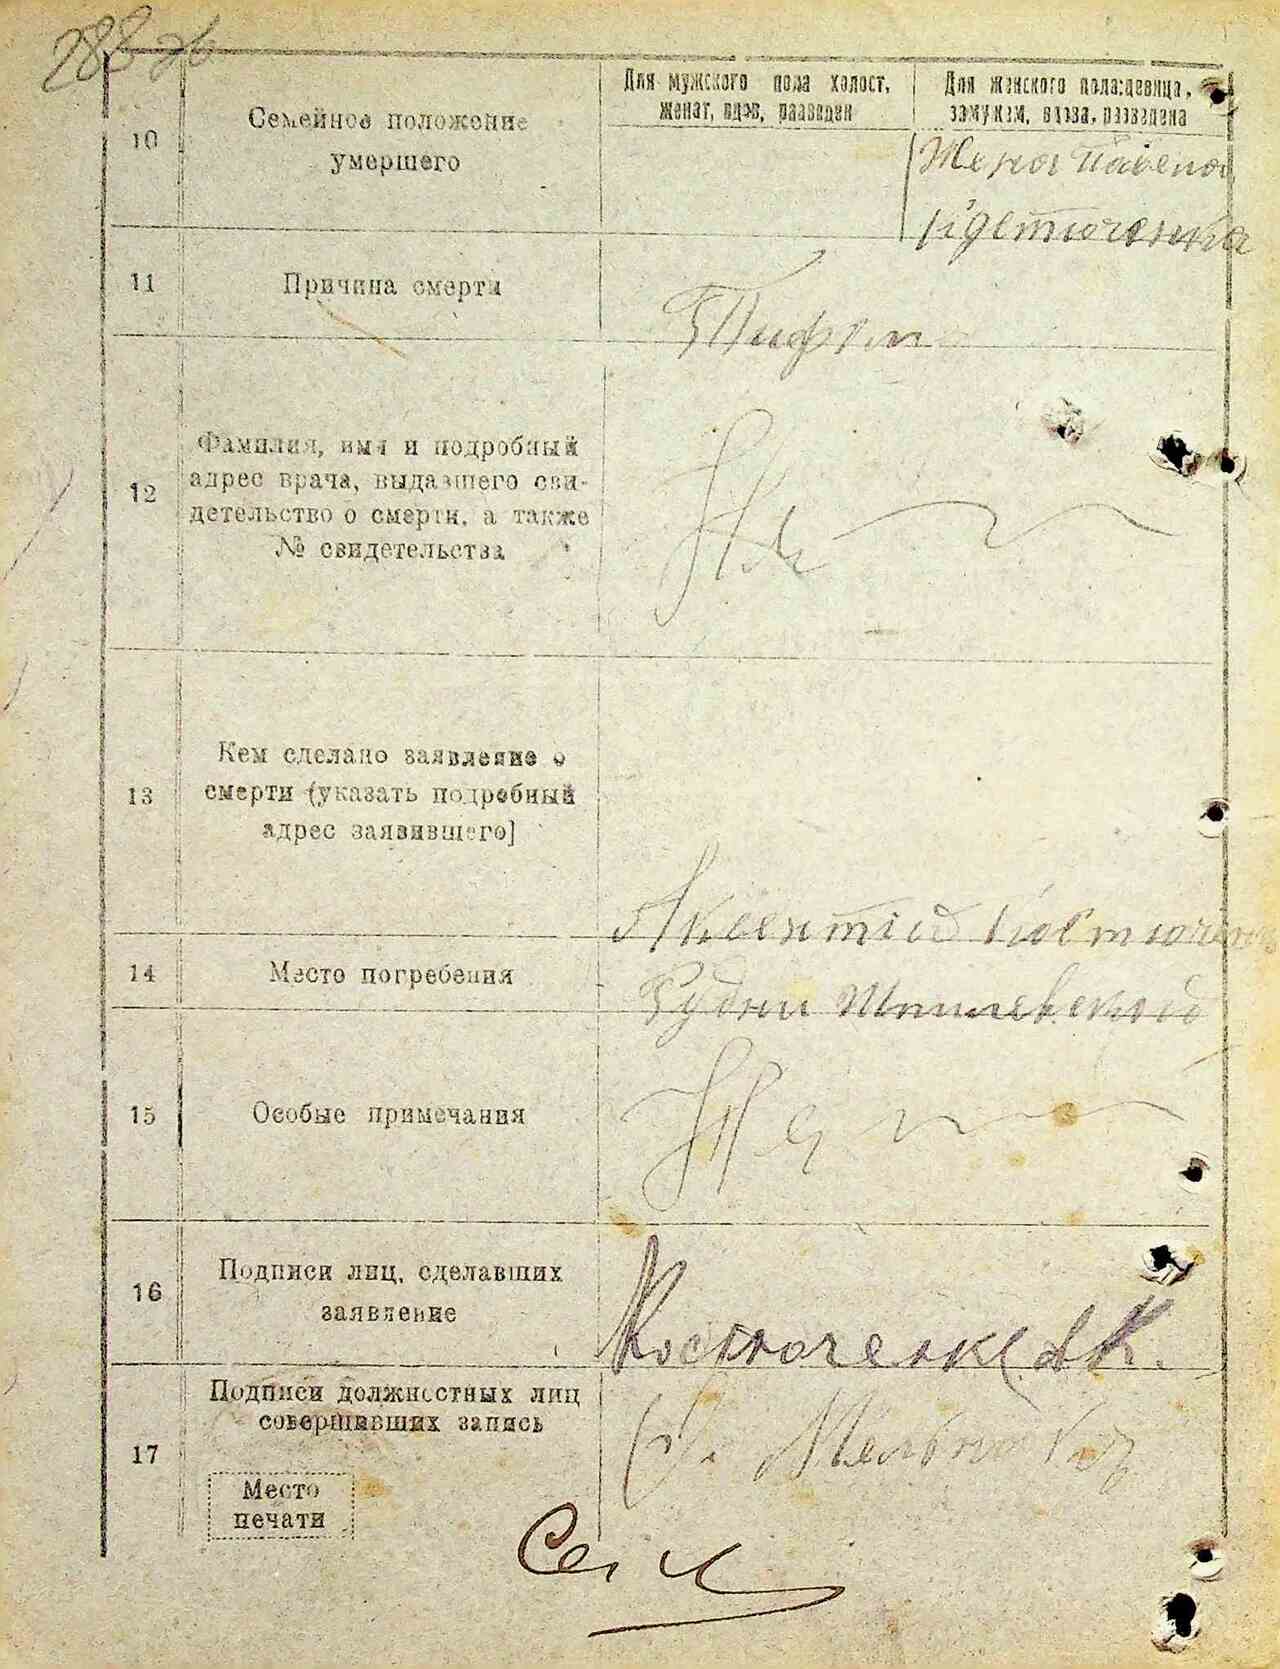 288
10
Семейное положение
умершего
Для мужского пола холост,
женат, вдов, разведен
Для женского пола:девица,
замужем, вдова, разведена
Жена Павела
Костюченка
11
Причина смерти
Тифом
12
Фамилия, имя и подробный
адрес врача, выдавшего сви-
детельство о смерти, а также
№ свидетельства
13
Кем сделано заявление о
смерти (указать подробный
адрес заявившего]
Аксентій Костюченко
14
Место погребения
Рудни
15
Особые примечания
16
Подписи лиц, сделавших
заявление
Костюченко
17
Подписи должностных лиц
совершивших запись
Место
печати